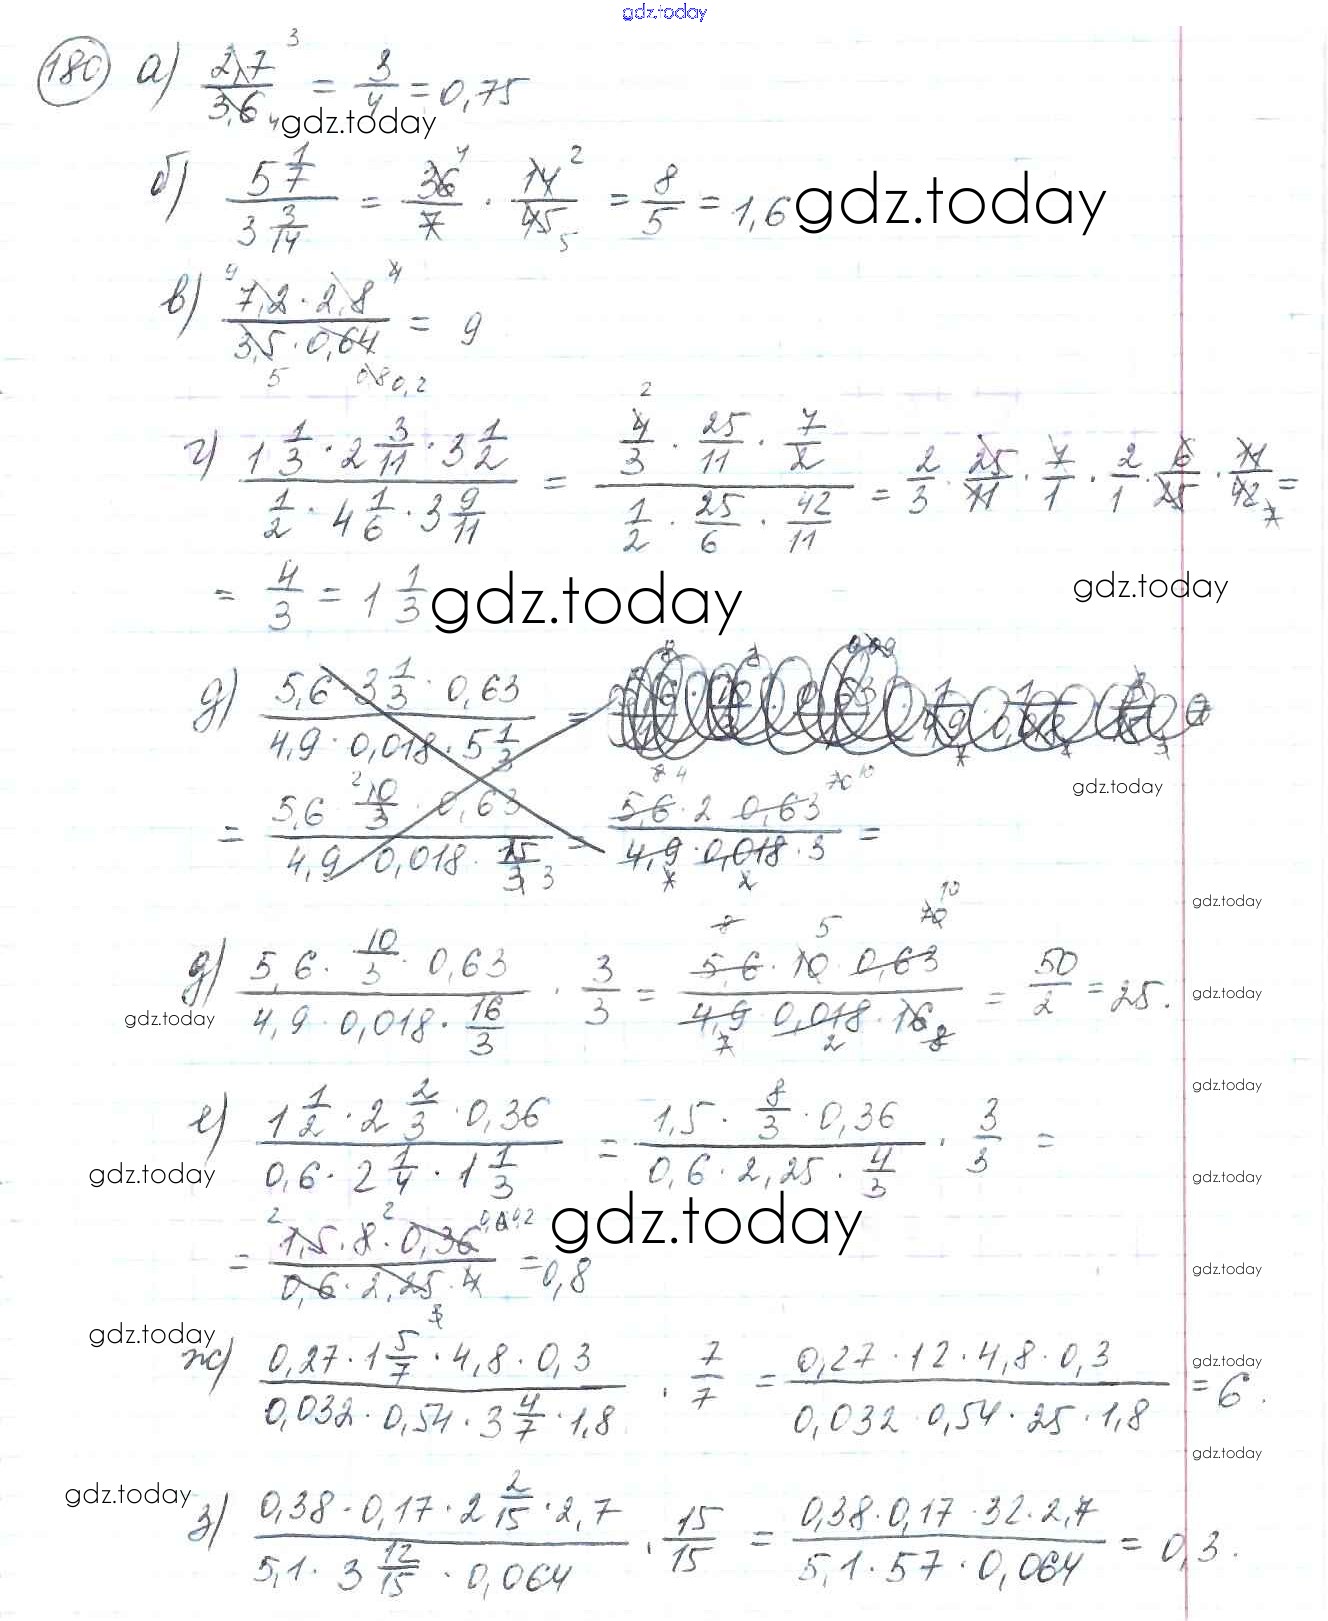 gdz.today
180 а) 2,7/3,6 = 3/4 = 0,75
3 4
gdz.today
б) 5 1/7 / 3 3/14 = 36/7 · 14/45 = 8/5 = 1,6
4 2 5
gdz.today
в) 7,2 · 2,8 / 3,5 · 0,64 = 9
9 4
5 0,8 0,2
г) 1 1/3 · 2 3/11 · 3 1/2 / 1/2 · 4 1/6 · 3 9/11 = 4/3 · 25/11 · 7/2 / 1/2 · 25/6 · 42/11 = 2/3 · 25/11 · 7/1 · 2/1 · 6/25 · 11/42 =
2 7
= 4/3 = 1 1/3
gdz.today gdz.today
д) 5,6 · 3 1/3 · 0,63 / 4,9 · 0,018 · 5 1/3 =
gdz.today
= 5,6 · 10/3 · 0,63 / 4,9 · 0,018 · 15/3 = 5,6 · 2 · 0,63 / 4,9 · 0,018 · 3 =
2 3 8 4 70 10 7 2
gdz.today
д) 5,6 · 10/3 · 0,63 / 4,9 · 0,018 · 16/3 · 3/3 = 5,6 · 10 · 0,63 / 4,9 · 0,018 · 16 = 50/2 = 25.
8 5 70 10 7 2 8
gdz.today gdz.today
gdz.today
е) 1 1/2 · 2 2/3 · 0,36 / 0,6 · 2 1/4 · 1 1/3 = 1,5 · 8/3 · 0,36 / 0,6 · 2,25 · 4/3 · 3/3 =
gdz.today gdz.today
= 1,5 · 8 · 0,36 / 0,6 · 2,25 · 4 = 0,8
gdz.today gdz.today
gdz.today gdz.today
ж) 0,27 · 1 5/7 · 4,8 · 0,3 / 0,032 · 0,54 · 3 4/7 · 1,8 · 7/7 = 0,27 · 12 · 4,8 · 0,3 / 0,032 · 0,54 · 25 · 1,8 = 6.
gdz.today gdz.today
з) 0,38 · 0,17 · 2 2/15 · 2,7 / 5,1 · 3 12/15 · 0,064 · 15/15 = 0,38 · 0,17 · 32 · 2,7 / 5,1 · 57 · 0,064 = 0,3.